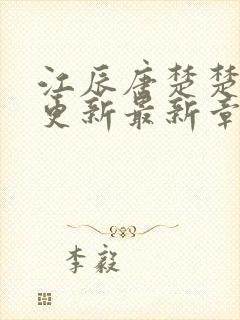 江辰唐楚楚
更新最新章
李毅